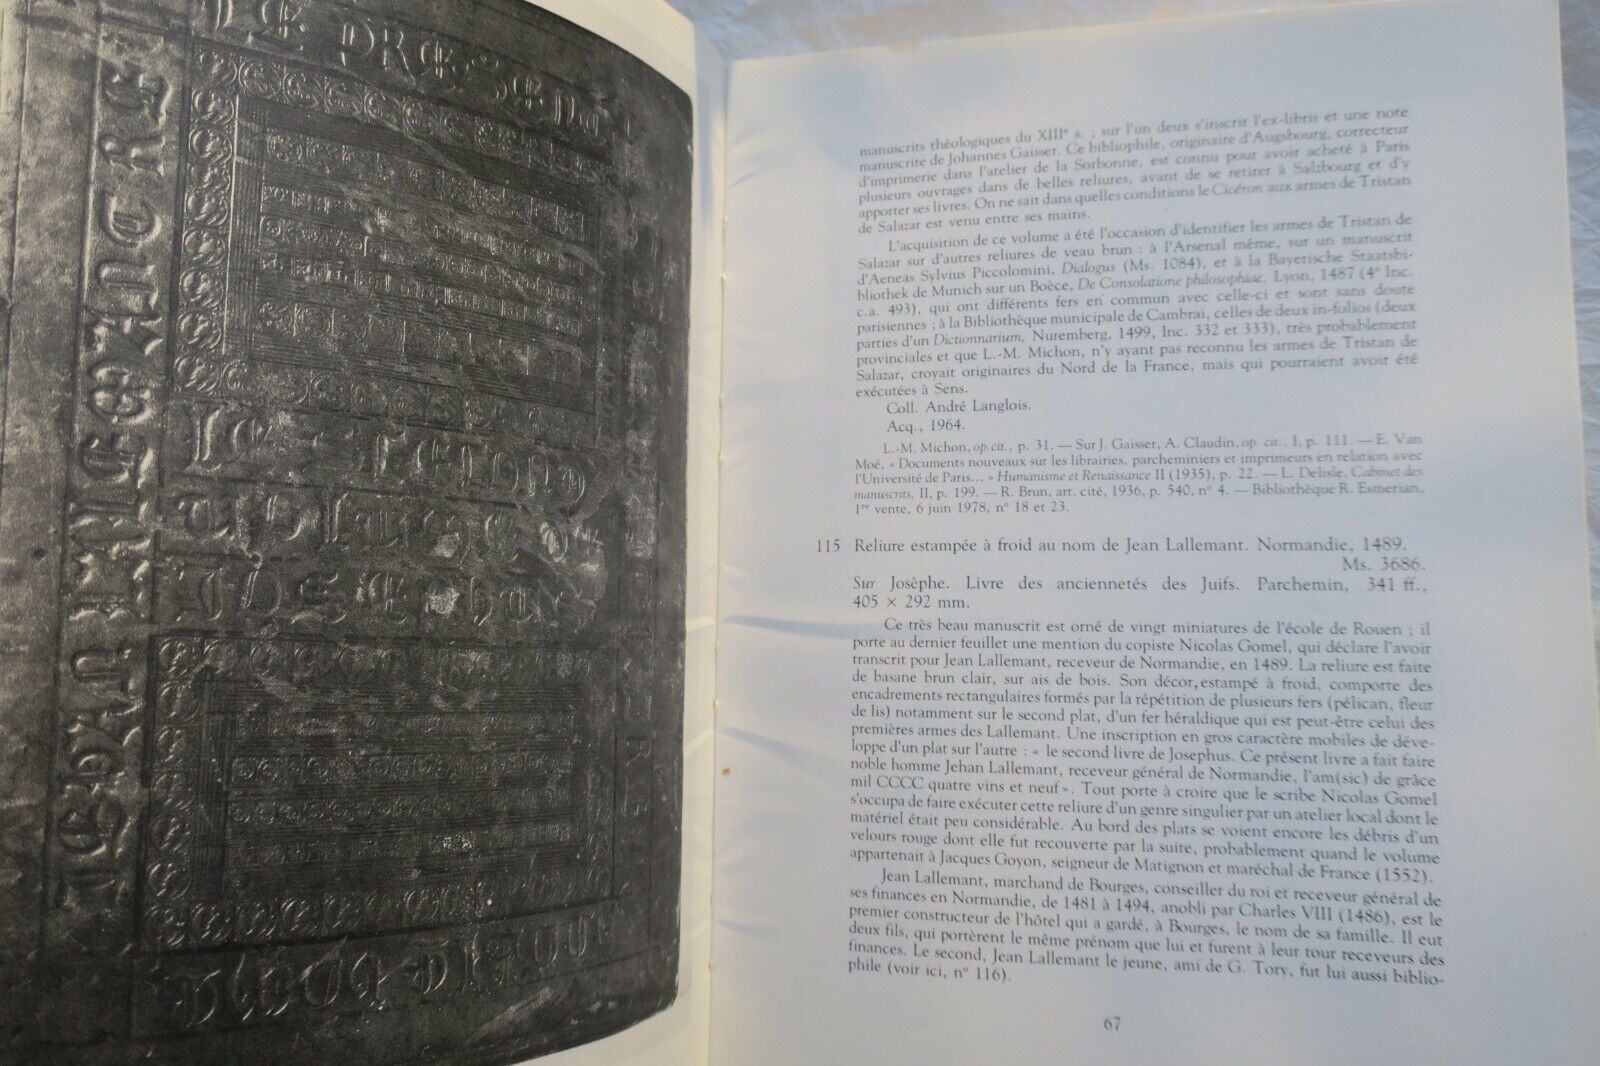 LE PRESENT
LE SECOND
IOSEPHUS
manuscrits théologiques du XIIIe s. ; sur l'un deux s'inscrit l'ex-libris et une note
manuscrite de Johannes Gaisser. Ce bibliophile, originaire d'Augsbourg, correcteur
d'imprimerie dans l'atelier de la Sorbonne, est connu pour avoir acheté à Paris
plusieurs ouvrages dans de belles reliures, avant de se retirer à Salzbourg et d'y
apporter ses livres. On ne sait dans quelles conditions le Cicéron aux armes de Tristan
de Salazar est venu entre ses mains.
L'acquisition de ce volume a été l'occasion d'identifier les armes de Tristan de
Salazar sur d'autres reliures de veau brun : à l'Arsenal même, sur un manuscrit
d'Aeneas Sylvius Piccolomini, Dialogus (Ms. 1084), et à la Bayerische Staatsbi-
bliothek de Munich sur un Boèce, De Consolatione philosophiae, Lyon, 1487 (4º Inc.
c.a. 493), qui ont différents fers en commun avec celle-ci et sont sans doute
parisiennes ; à la Bibliothèque municipale de Cambrai, celles de deux in-folios (deux
parties d'un Dictionnarium, Nuremberg, 1499, Inc. 332 et 333), très probablement
provinciales et que L.-M. Michon, n'y ayant pas reconnu les armes de Tristan de
Salazar, croyait originaires du Nord de la France, mais qui pourraient avoir été
exécutées à Sens.
Coll. André Langlois.
Acq., 1964.
L.-M. Michon, op. cit., p. 31. — Sur J. Gaisser, A. Claudin, op. cit., I, p. 111. — E. Van
Moé, « Documents nouveaux sur les librairies, parcheminiers et imprimeurs en relation avec
l'Université de Paris... » Humanisme et Renaissance II (1935), p. 22. — L. Delisle, Cabinet des
manuscrits, II, p. 199. — R. Brun, art. cité, 1936, p. 540, nº 4. — Bibliothèque R. Esmerian,
1re vente, 6 juin 1978, nº 18 et 23.
115 Reliure estampée à froid au nom de Jean Lallemant. Normandie, 1489.
Ms. 3686.
Sur Josèphe. Livre des anciennetés des Juifs. Parchemin, 341 ff.,
405 × 292 mm.
Ce très beau manuscrit est orné de vingt miniatures de l'école de Rouen ; il
porte au dernier feuillet une mention du copiste Nicolas Gomel, qui déclare l'avoir
transcrit pour Jean Lallemant, receveur de Normandie, en 1489. La reliure est faite
de basane brun clair, sur ais de bois. Son décor, estampé à froid, comporte des
encadrements rectangulaires formés par la répétition de plusieurs fers (pélican, fleur
de lis) notamment sur le second plat, d'un fer héraldique qui est peut-être celui des
premières armes des Lallemant. Une inscription en gros caractère mobiles de déve-
loppe d'un plat sur l'autre : « le second livre de Josephus. Ce présent livre a fait faire
noble homme Jehan Lallemant, receveur général de Normandie, l'am(sic) de grâce
mil CCCC quatre vins et neuf ». Tout porte à croire que le scribe Nicolas Gomel
s'occupa de faire exécuter cette reliure d'un genre singulier par un atelier local dont le
matériel était peu considérable. Au bord des plats se voient encore les débris d'un
velours rouge dont elle fut recouverte par la suite, probablement quand le volume
appartenait à Jacques Goyon, seigneur de Matignon et maréchal de France (1552).
Jean Lallemant, marchand de Bourges, conseiller du roi et receveur général de
ses finances en Normandie, de 1481 à 1494, anobli par Charles VIII (1486), est le
premier constructeur de l'hôtel qui a gardé, à Bourges, le nom de sa famille. Il eut
deux fils, qui portèrent le même prénom que lui et furent à leur tour receveurs des
finances. Le second, Jean Lallemant le jeune, ami de G. Tory, fut lui aussi biblio-
phile (voir ici, nº 116).
67